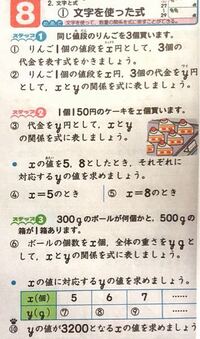 8
2. 文字と式
① 文字を使った式
文字を使って、数量の関係を式に表すことができる。
ステップ1 同じ値段のりんごを3個買います。
① りんご1個の値段をx円として、3個の
代金を表す式をかきましょう。
② りんご1個の値段をx円、3個の代金をy円
として、xとyの関係を式に表しましょう。
ステップ2 1個150円のケーキをx個買います。
③ 代金をy円として、xとy
の関係を式に表しましょう。
● xの値を5、8としたとき、それぞれに
対応するyの値を求めましょう。
④ x=5のとき ⑤ x=8のとき
ステップ3 300gのボールが何個かと、500gの
箱が1箱あります。
⑥ ボールの個数をx個、全体の重さをygと
して、xとyの関係を式に表しましょう。
● xの値に対応するyの値を求めましょう。
x(個) 5 6 7 ……
y(g) ⑦ ⑧ ⑨ ……
⑩ yの値が3200となるxの値を求めましょう